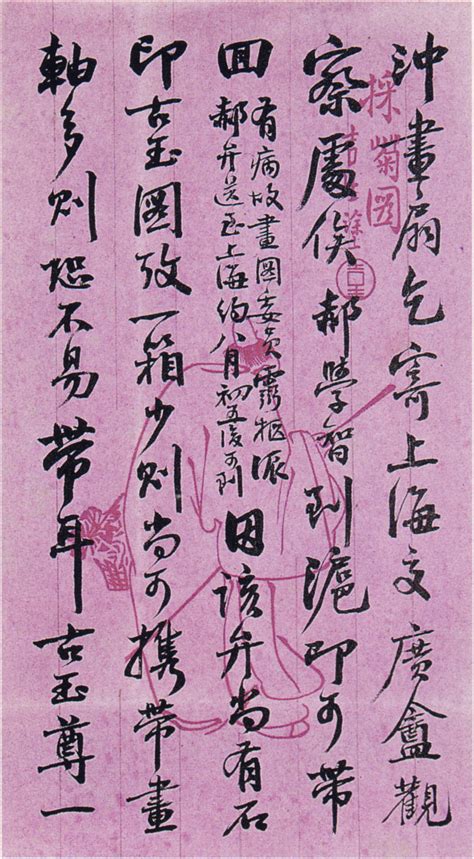 沖畫扇乞寄上海交廣盦觀
察處俟郝學智到滬即可帶
回
有病故畫圖委員靈柩派
郝弁送至上海約八月初五後可到
因該弁尚有石
印古玉圖攷一箱少則尚可携帶畫
軸多則恐不易帶耳古玉尊一
採菊圖